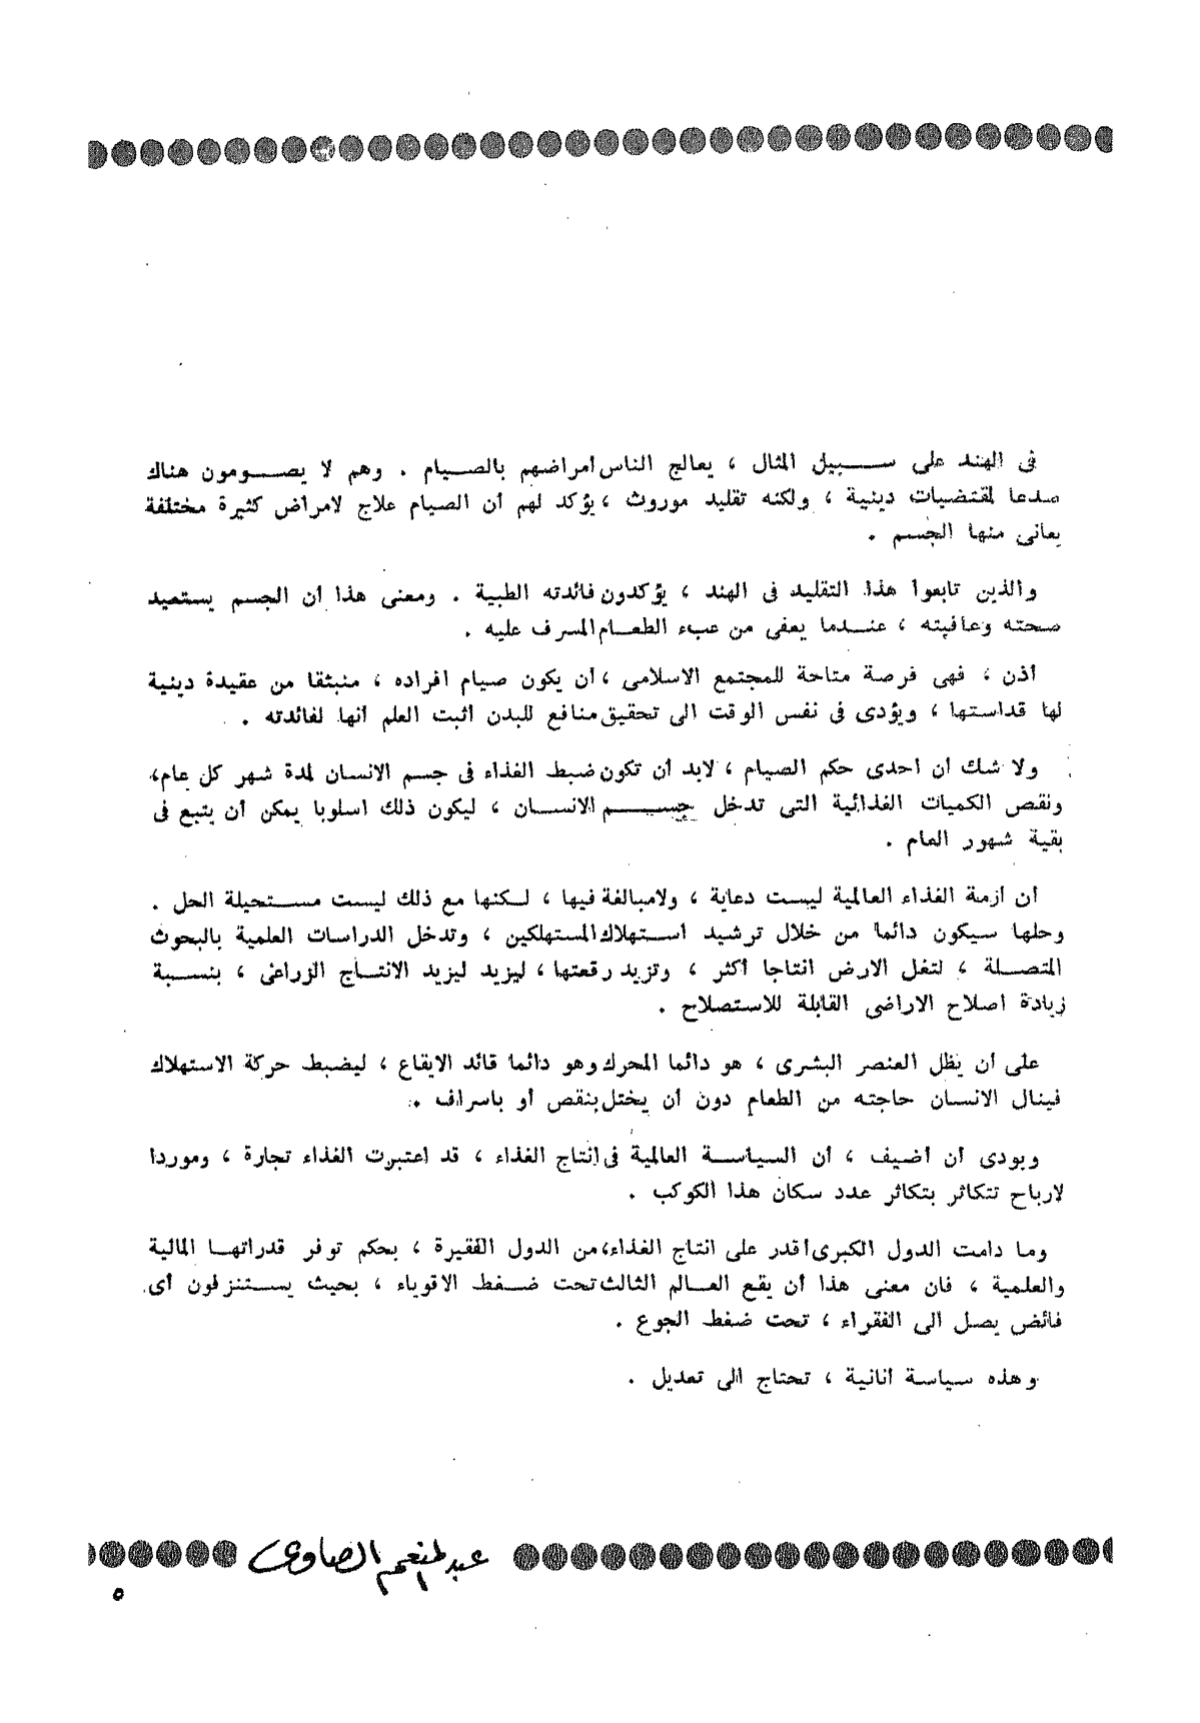 فى الهند على سبيل المثال ، يعالج الناس امراضهم بالصيام . وهم لا يصومون هناك
صدعا لمقتضيات دينية ، ولكنه تقليد موروث ، يؤكد لهم أن الصيام علاج لامراض كثيرة مختلفة
يعانى منها الجسم .
والذين تابعوا هذا التقليد فى الهند ، يؤكدون فائدته الطبية . ومعنى هذا ان الجسم يستعيد
صحته وعافيته ، عندما يعفى من عبء الطعام المسرف عليه .
أذن ، فهى فرصة متاحة للمجتمع الاسلامى ، أن يكون صيام افراده ، منبثقا من عقيدة دينية
لها قداستها ، ويؤدى فى نفس الوقت الى تحقيق منافع للبدن أثبت العلم أنها لفائدته .
ولا شك ان احدى حكم الصيام ، لابد أن تكون ضبط الغذاء فى جسم الانسان لمدة شهر كل عام ،
ونقص الكميات الغذائية التى تدخل جسم الانسان ، ليكون ذلك اسلوبا يمكن أن يتبع فى
بقية شهور العام .
ان ازمة الغذاء العالمية ليست دعاية ، ولامبالغة فيها ، لكنها مع ذلك ليست مستحيلة الحل .
وحلها سيكون دائما من خلال ترشيد استهلاك المستهلكين ، وتدخل الدراسات العلمية بالبحوث
المتصلة ، لتغل الارض انتاجا أكثر ، وتزيد رقعتها ، ليزيد ليزيد الانتاج الزراعى ، بنسبة
زيادة اصلاح الاراضى القابلة للاستصلاح .
على ان يظل العنصر البشرى ، هو دائما المحرك وهو دائما قائد الايقاع ، ليضبط حركة الاستهلاك
فينال الانسان حاجته من الطعام دون أن يختل بنقص أو باسراف .
وبودى ان اضيف ، أن السياسة العالمية فى انتاج الغذاء ، قد اعتبرت الغذاء تجارة ، وموردا
لارباح تتكاثر بتكاثر عدد سكان هذا الكوكب .
وما دامت الدول الكبرى أقدر على انتاج الغذاء، من الدول الفقيرة ، بحكم توفر قدراتها المالية
والعلمية ، فان معنى هذا أن يقع العالم الثالث تحت ضغط الاقوياء ، بحيث يستنزفون أى
فائض يصل الى الفقراء ، تحت ضغط الجوع .
وهذه سياسة انانية ، تحتاج الى تعديل .
عبد المنعم الصاوى
٥